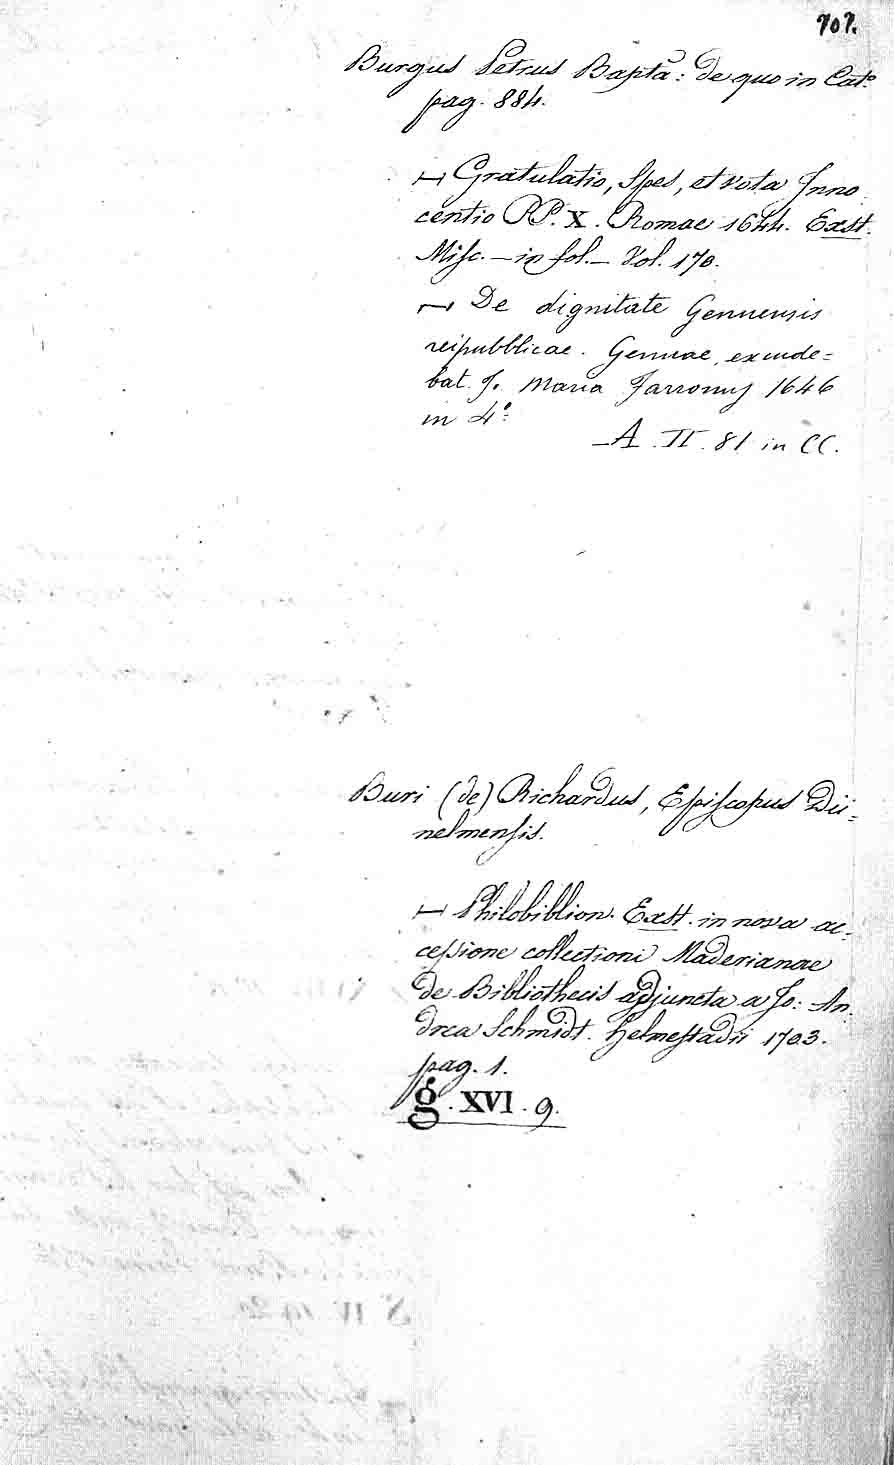 707.
Burgus Petrus Bapta: de quo in Cat.º
pag. 884.
⊢⊣ Gratulatio, Spes, et vota Inno
centio PP. X. Romae 1644. Exst.
Misc. — in fol. — Vol. 170.
⊢⊣ De dignitate Genuensis
reipubblicae. Genuae, excude=
bat J. Maria Farronus 1646
in 4º:
A. II. 81 in CC.
Buri (de) Richardus, Episcopus Du=
nelmensis.
⊢⊣ Philobiblion. Exst. in nova ac=
cessione collectioni Maderianae
de Bibliothecis adjuncta a Jo: An
drea Schmidt. Helmestadii 1703.
pag. 1.
g. XVI. 9.